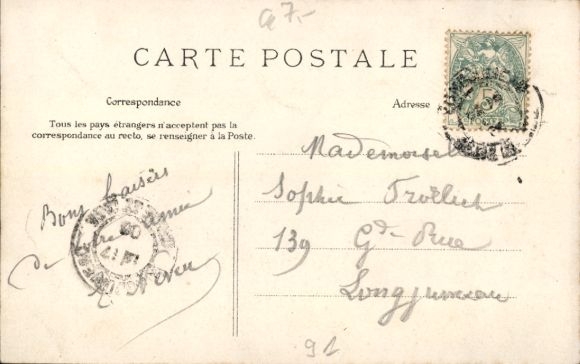 a 7.-
CARTE POSTALE
Correspondance
Adresse
Tous les pays étrangers n'acceptent pas la
correspondance au recto, se renseigner à la Poste.
Bons baisers
de votre amie
Mademoisel
Sophie Frölich
139 Gde Rue
Longjumeau
91